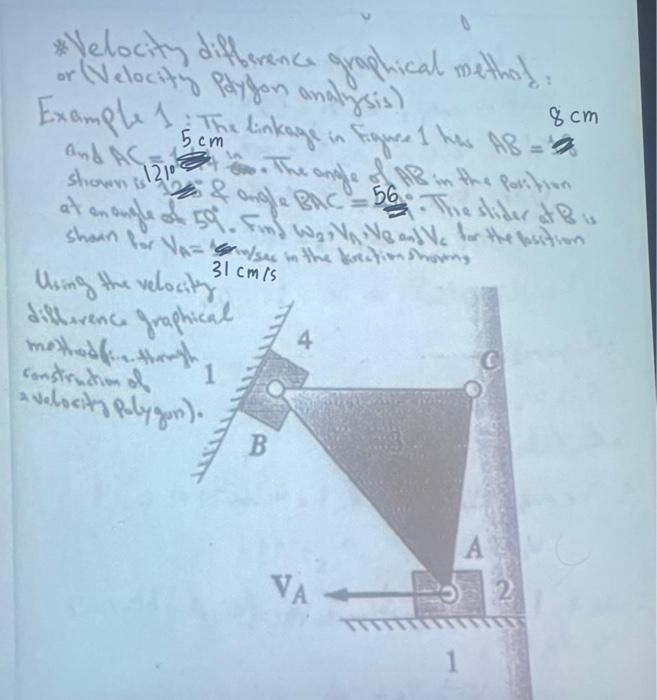 *Velocity difference graphical method:
or (Velocity Polygon analysis)
Example 1: The linkage in Figure 1 has AB = 8 cm
and AC = 5 cm. The angle of AB in the position
shown is 121° & angle BAC = 56°. The slider at B is
at an angle of 59°. Find ω₃, VA, VB and VC for the position
shown for VA = 31 cm/s in the direction shown,
Using the velocity
difference graphical
method (i.e. through
construction of
a velocity polygon).
4
1
C
B
3
A
VA
2
1